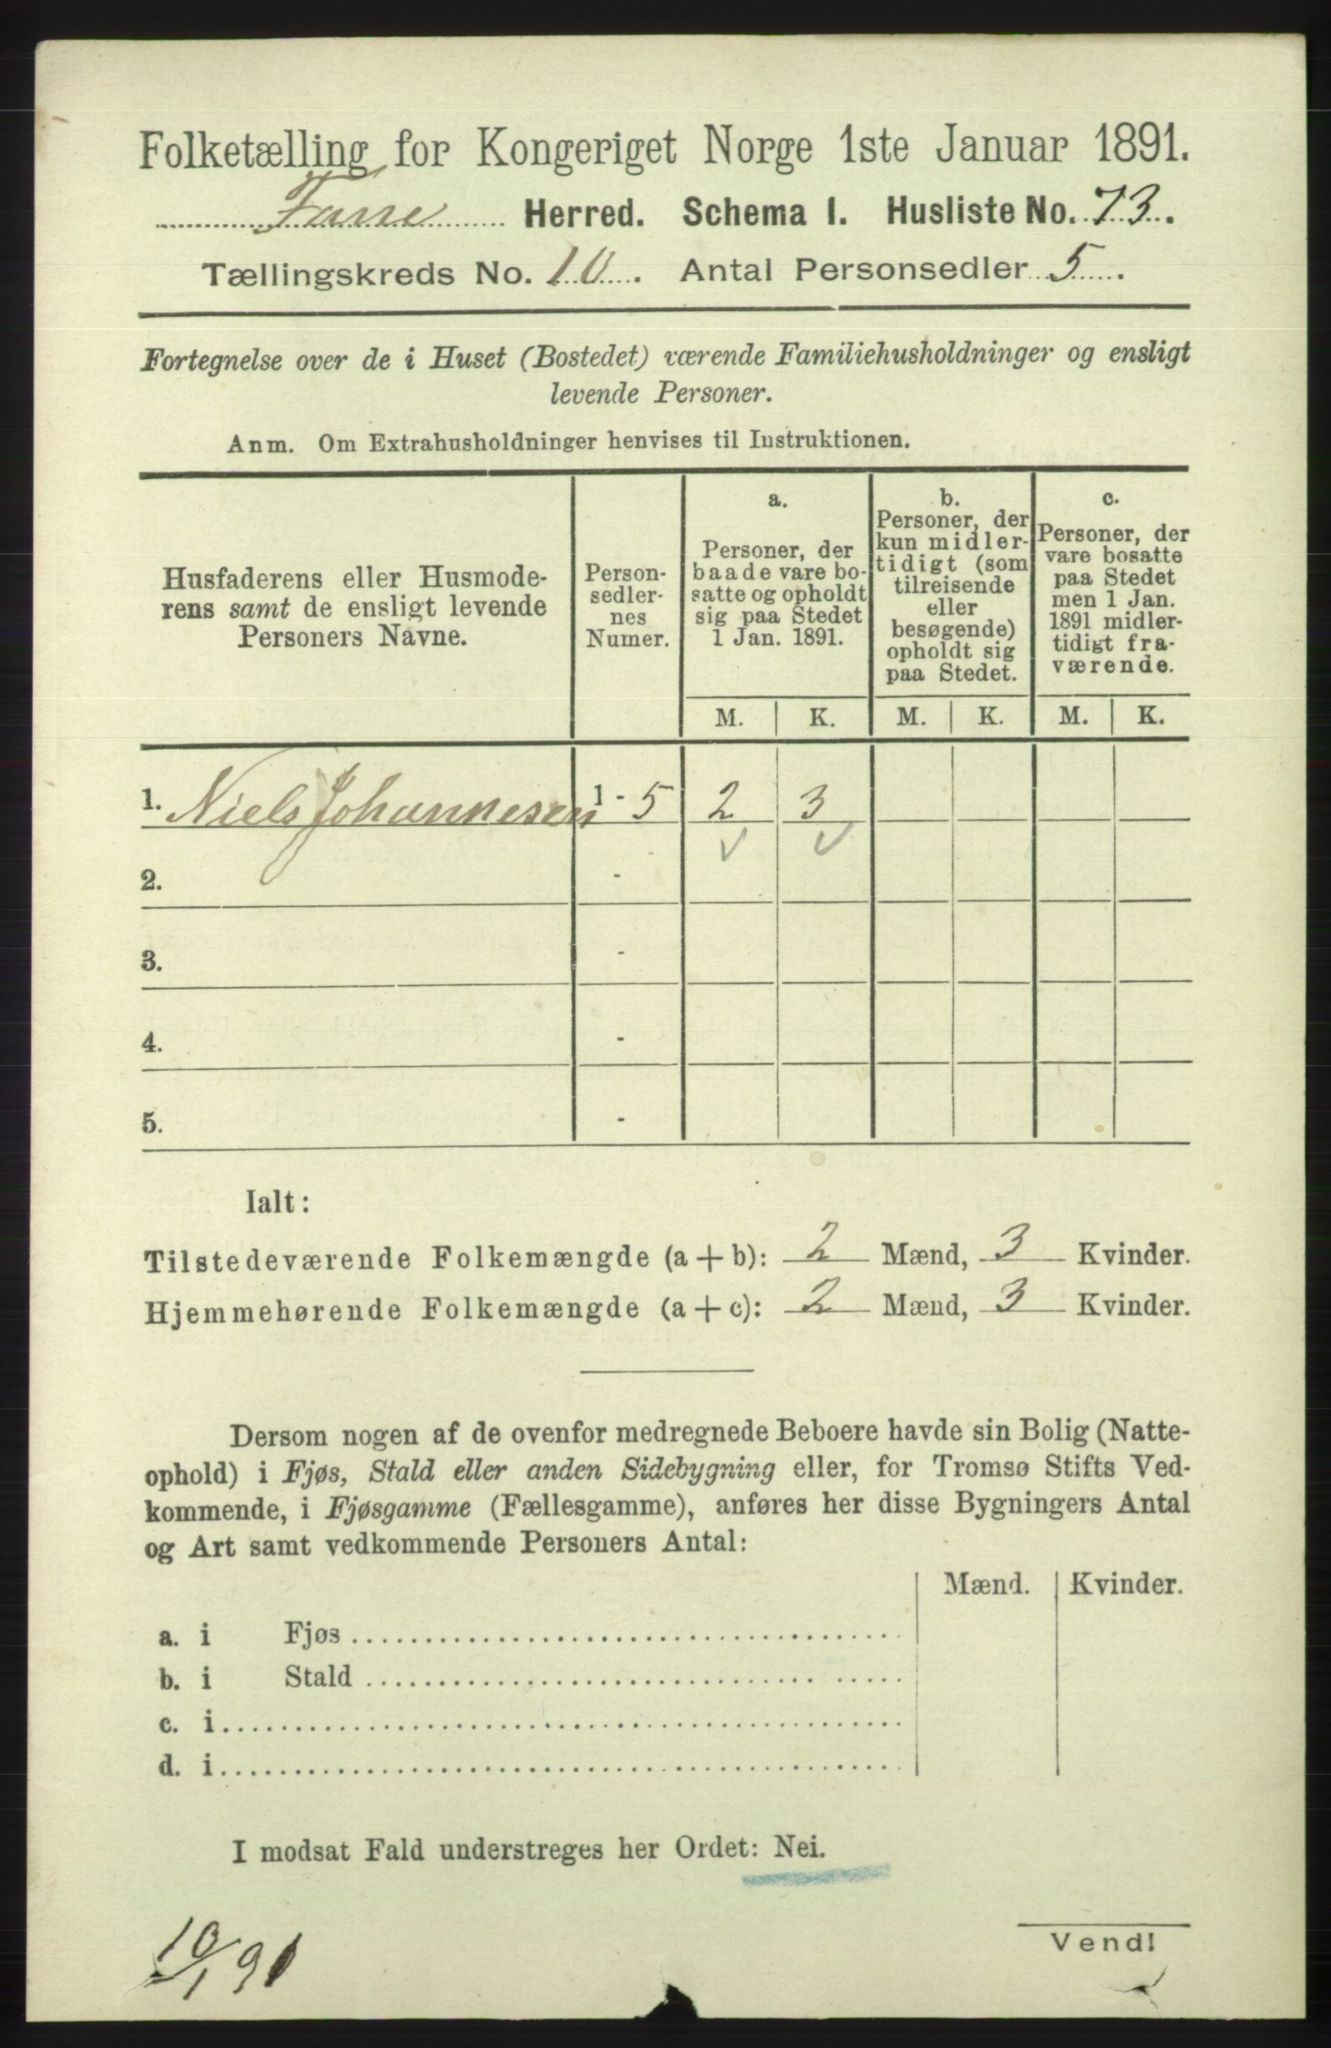 Folketælling for Kongeriget Norge 1ste Januar 1891.
Herred. Schema I. Husliste No. 73.
Tællingskreds No. 10. Antal Personsedler 5.
Fortegnelse over de i Huset (Bostedet) værende Familiehusholdninger og ensligt
levende Personer.
Anm. Om Extrahusholdninger henvises til Instruktionen.
Husfaderens eller Husmode-
rens samt de ensligt levende
Personers Navne.
Person-
sedler-
nes
Numer.
a.
Personer, der
baade vare bo-
satte og opholdt
sig paa Stedet
1 Jan. 1891.
b.
Personer, der
kun midler-
tidigt (som
tilreisende
eller
besøgende)
opholdt sig
paa Stedet.
c.
Personer, der
vare bosatte
paa Stedet
men 1 Jan.
1891 midler-
tidigt fra-
værende.
M. K. M. K. M. K.
1. Niels Johannesen 1 - 5 2 3
2. -
3. -
4. -
5. -
Ialt:
Tilstedeværende Folkemængde (a + b): 2 Mænd, 3 Kvinder.
Hjemmehørende Folkemængde (a + c): 2 Mænd, 3 Kvinder.
Dersom nogen af de ovenfor medregnede Beboere havde sin Bolig (Natte-
ophold) i Fjøs, Stald eller anden Sidebygning eller, for Tromsø Stifts Ved-
kommende, i Fjøsgamme (Fællesgamme), anføres her disse Bygningers Antal
og Art samt vedkommende Personers Antal:
Mænd. Kvinder.
a. i Fjøs
b. i Stald
c. i
d. i
I modsat Fald understreges her Ordet: Nei.
10/1 91
Vend!